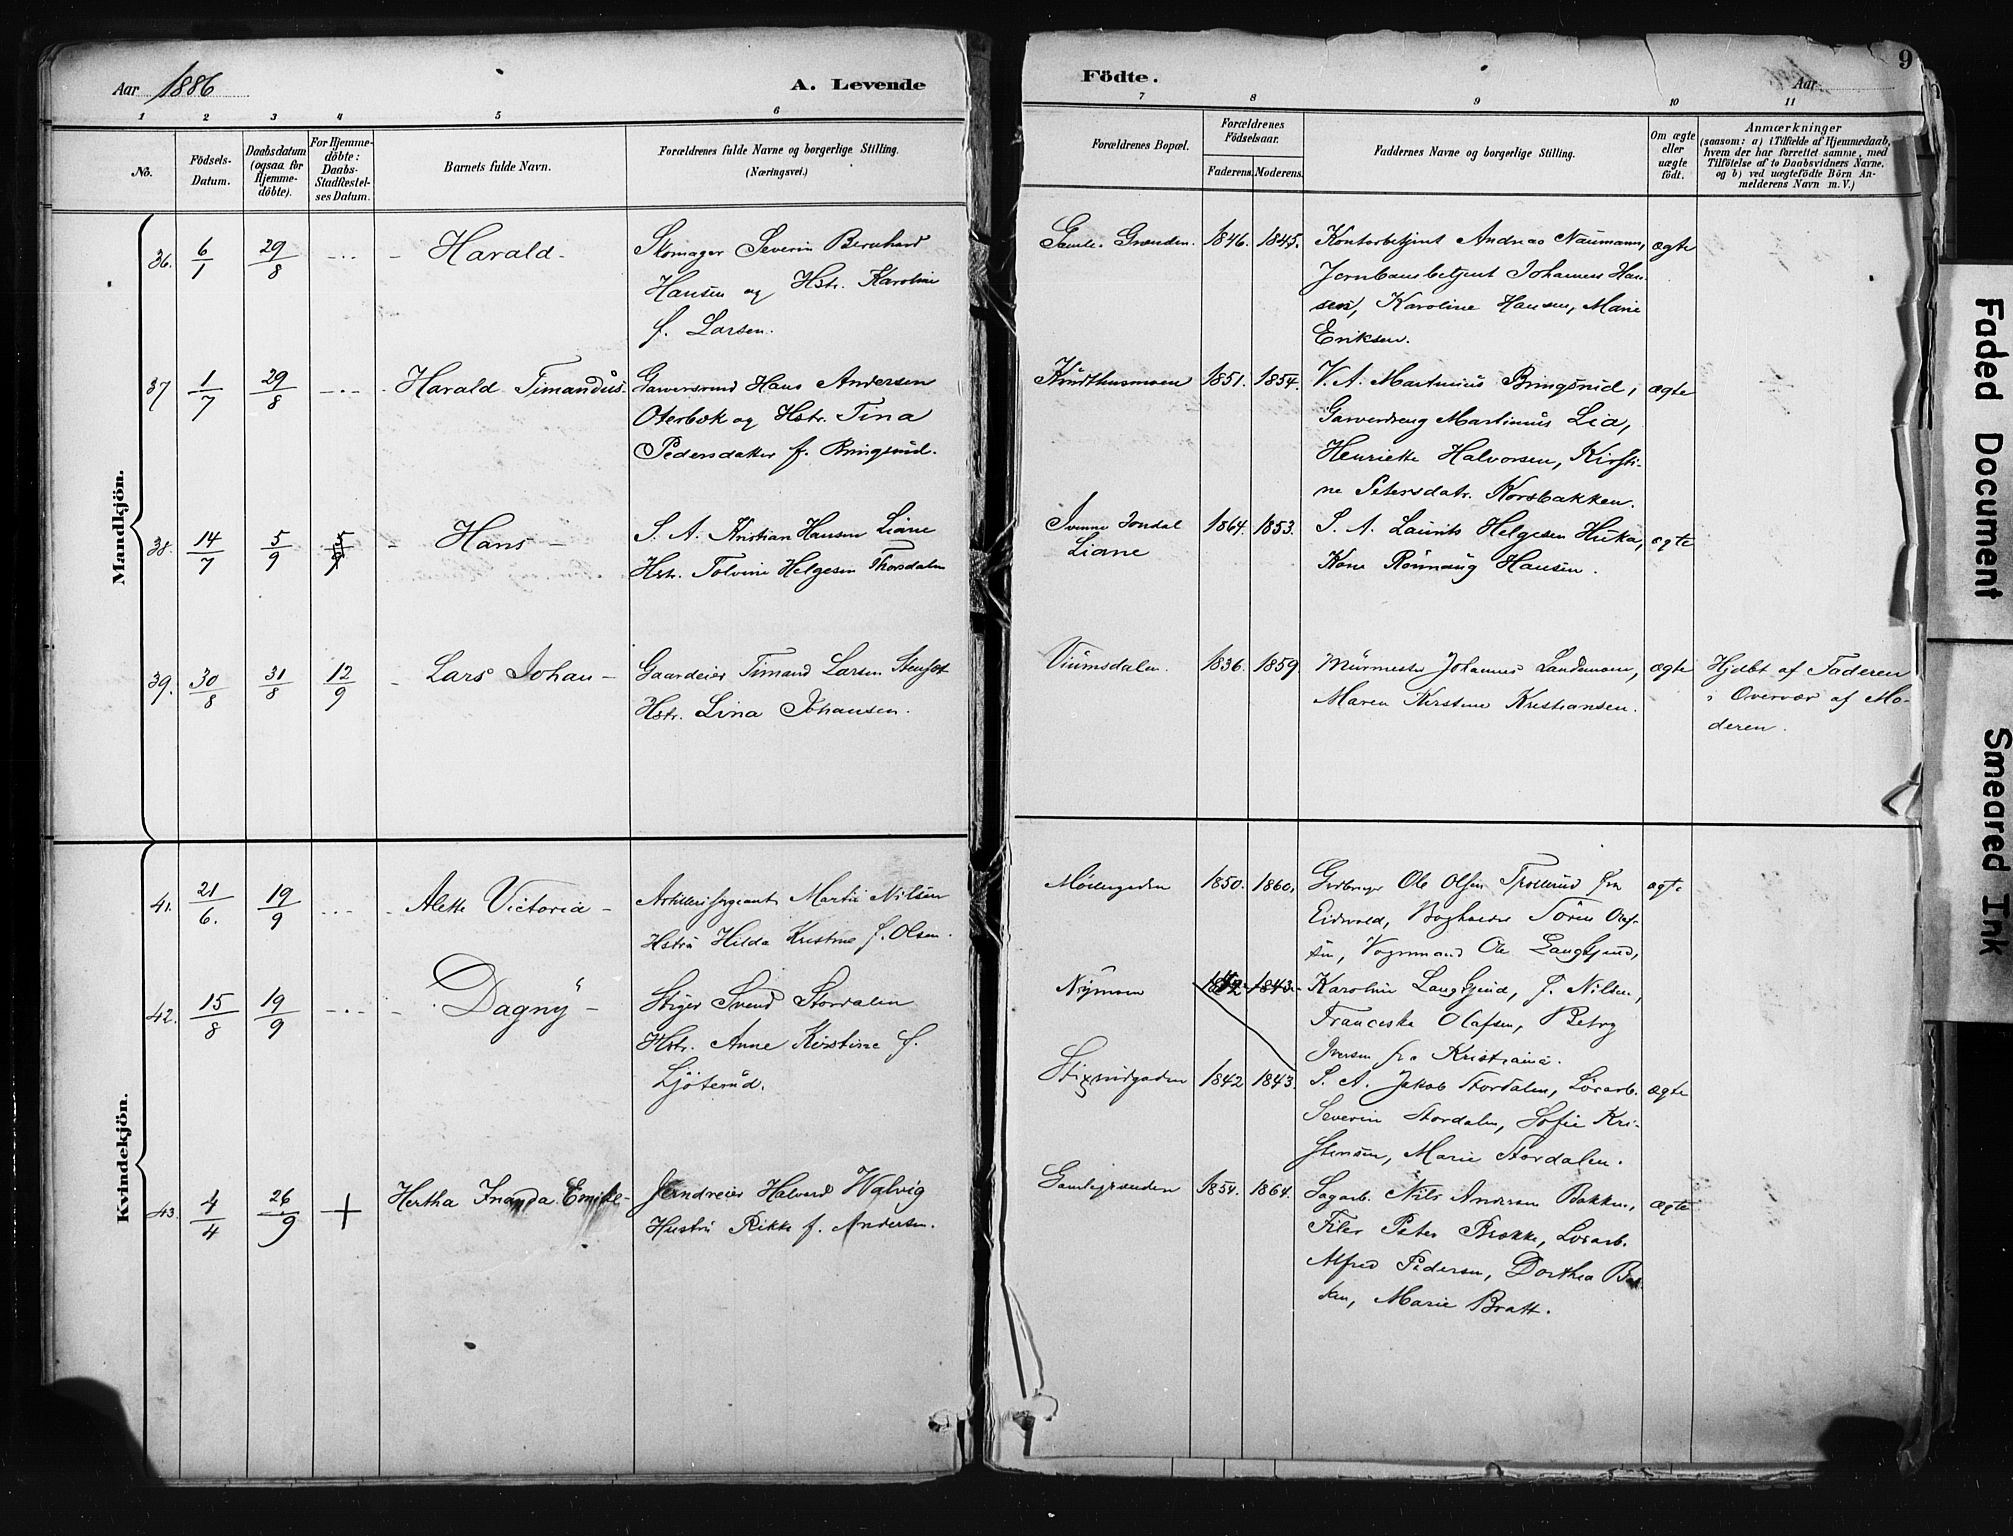 Aar 1886
A. Levende
Födte.
Aar
9
1 2 3 4 5 6 7 8 9 10 11
No.
Födsels-
Datum.
Daabsdatum
(ogsaa for
Hjemme-
döbte).
For Hjemme-
döbte:
Daabs-
Stadfestel-
ses Datum.
Barnets fulde Navn.
Forældrenes fulde Navne og borgerlige Stilling.
(Næringsvei.)
Forældrenes Bopæl.
Forældrenes
Födselsaar.
Faderens. Moderens.
Faddernes Navne og borgerlige Stilling.
Om ægte
eller
uægte
födt.
Anmærkninger
(saasom: a) i Tilfælde af Hjemmedaab,
hvem der har forrettet samme, med
Tilföielse af to Daabsvidners Navne,
og b) ved uægtefödte Börn An-
melderens Navn m. V.)
Mandkjön.
36. 6/1 29/8 Harald
Skomager Severin Bernhard
Hansen og Hstr. Karoline
f. Larsen.
Gamle-Grænden. 1846. 1845.
Kontorbetjent Andreas Naumann,
Jernbanebetjent Johannes Han-
sen, Karoline Hansen, Marie
Eriksen.
ægte
37 1/7 29/8 Harald Timandus
Garversvend Hans Andersen
Oterbæk og Hstr. Tina
Pedersdatter f. Bringsrud.
Knudthusmoen 1851. 1854.
V. A. Martinius Bringsrud,
Garverdreng Martinius Lia,
Henriette Halvorsen, Kirsti-
ne Petersdatr. Korsbakken.
ægte
38. 14/7 5/9 Hans
S. A. Kristian Hansen Liane
Hstr. Tolvine Helgesen Thorsdalen
Jondal
Liane 1864. 1853.
S. A. Laurits Helgesen
Kone Rønnaug Hansen.
ægte
39. 30/8 31/8 12/9 Lars Johan
Gaardeier Timand Larsen
Hstr. Lina Johansen.
Viumsdalen. 1836. 1859
Murmester Johannes Landsmann,
Maren Kirstine Kristiansen.
ægte
Hjdbt af Faderen
i Overvær af Mo-
deren.
Kvindekjön.
41. 21/6. 19/9 Alette Victoria
Artillerisergeant Martin Nilsen
Hstru Hilda Kristine f. Olsen.
Møllergaden 1850. 1860.
Ole Olsen Trollerud fra
Eidsvold, Bogholder Sören Olaf-
sen, Vognmand Ole Langkjend,
Karoline Langkjend, f. Nilsen,
Franciska Olafsen, Betsy
Iversen fra Kristiania.
ægte
Nymoen 1842 1843
42. 15/8 19/9 Dagny
Stiger Svend Stordalen
Hstr. Anne Kirstine f.
Ljøterud.
1842 1843.
S. A. Jakob Stordalen, Lösarb.
Severin Stordalen, Sofie Kri-
stensen, Marie Stordalen.
ægte
43. 4/4 26/9 + Hertha Inanda Emilie
Halvard Walvig
Hustru Rikke f. Andersen.
Gamlegrænden 1854. 1864.
Sagarb. Nils Andersen Bakken,
Filer Peter Brække, Lösarb.
Alfred Pedersen, Dorthea Bak-
ken, Marie Bratt.
ægte
Faded Document
Smeared Ink